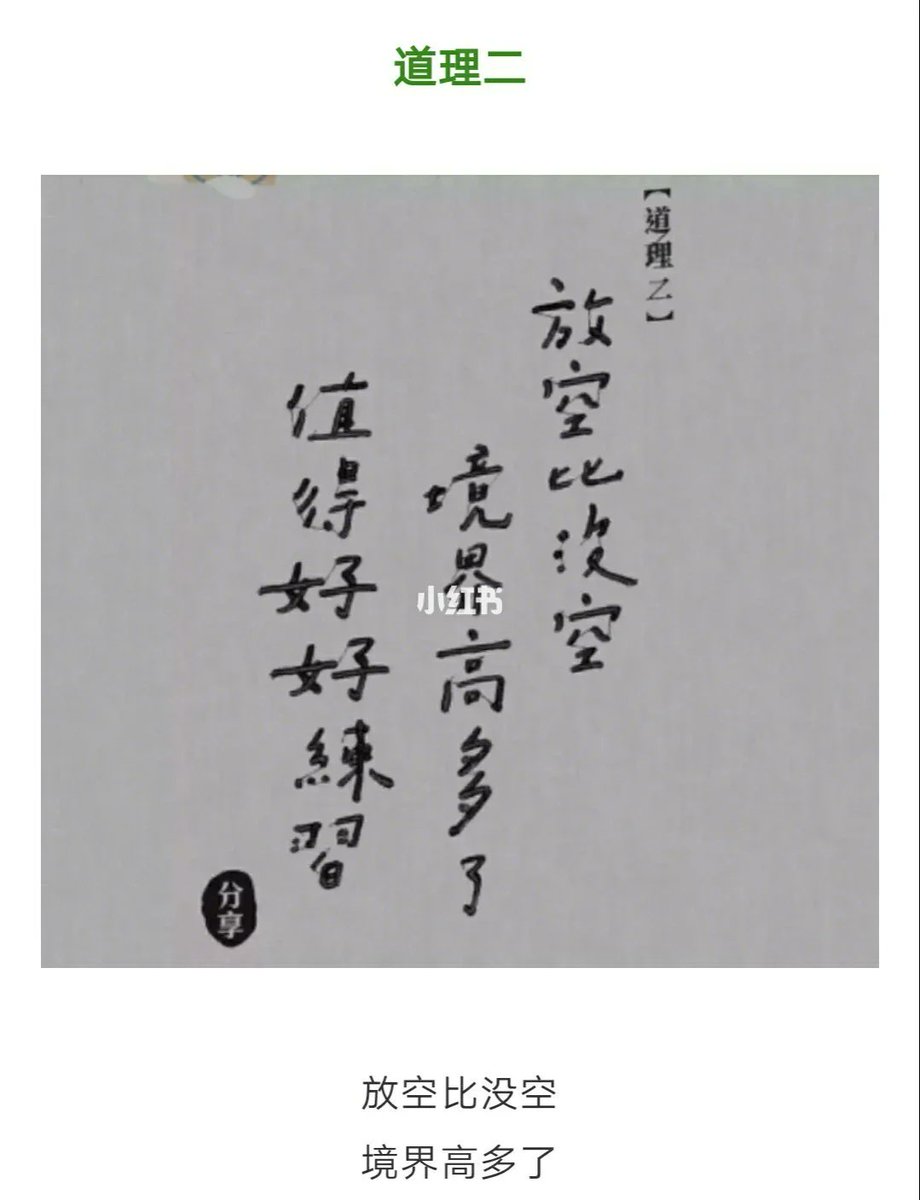 道理二
【道理乙】
放空比沒空
境界高多了
值得好好練習
分享
小红书
放空比没空
境界高多了